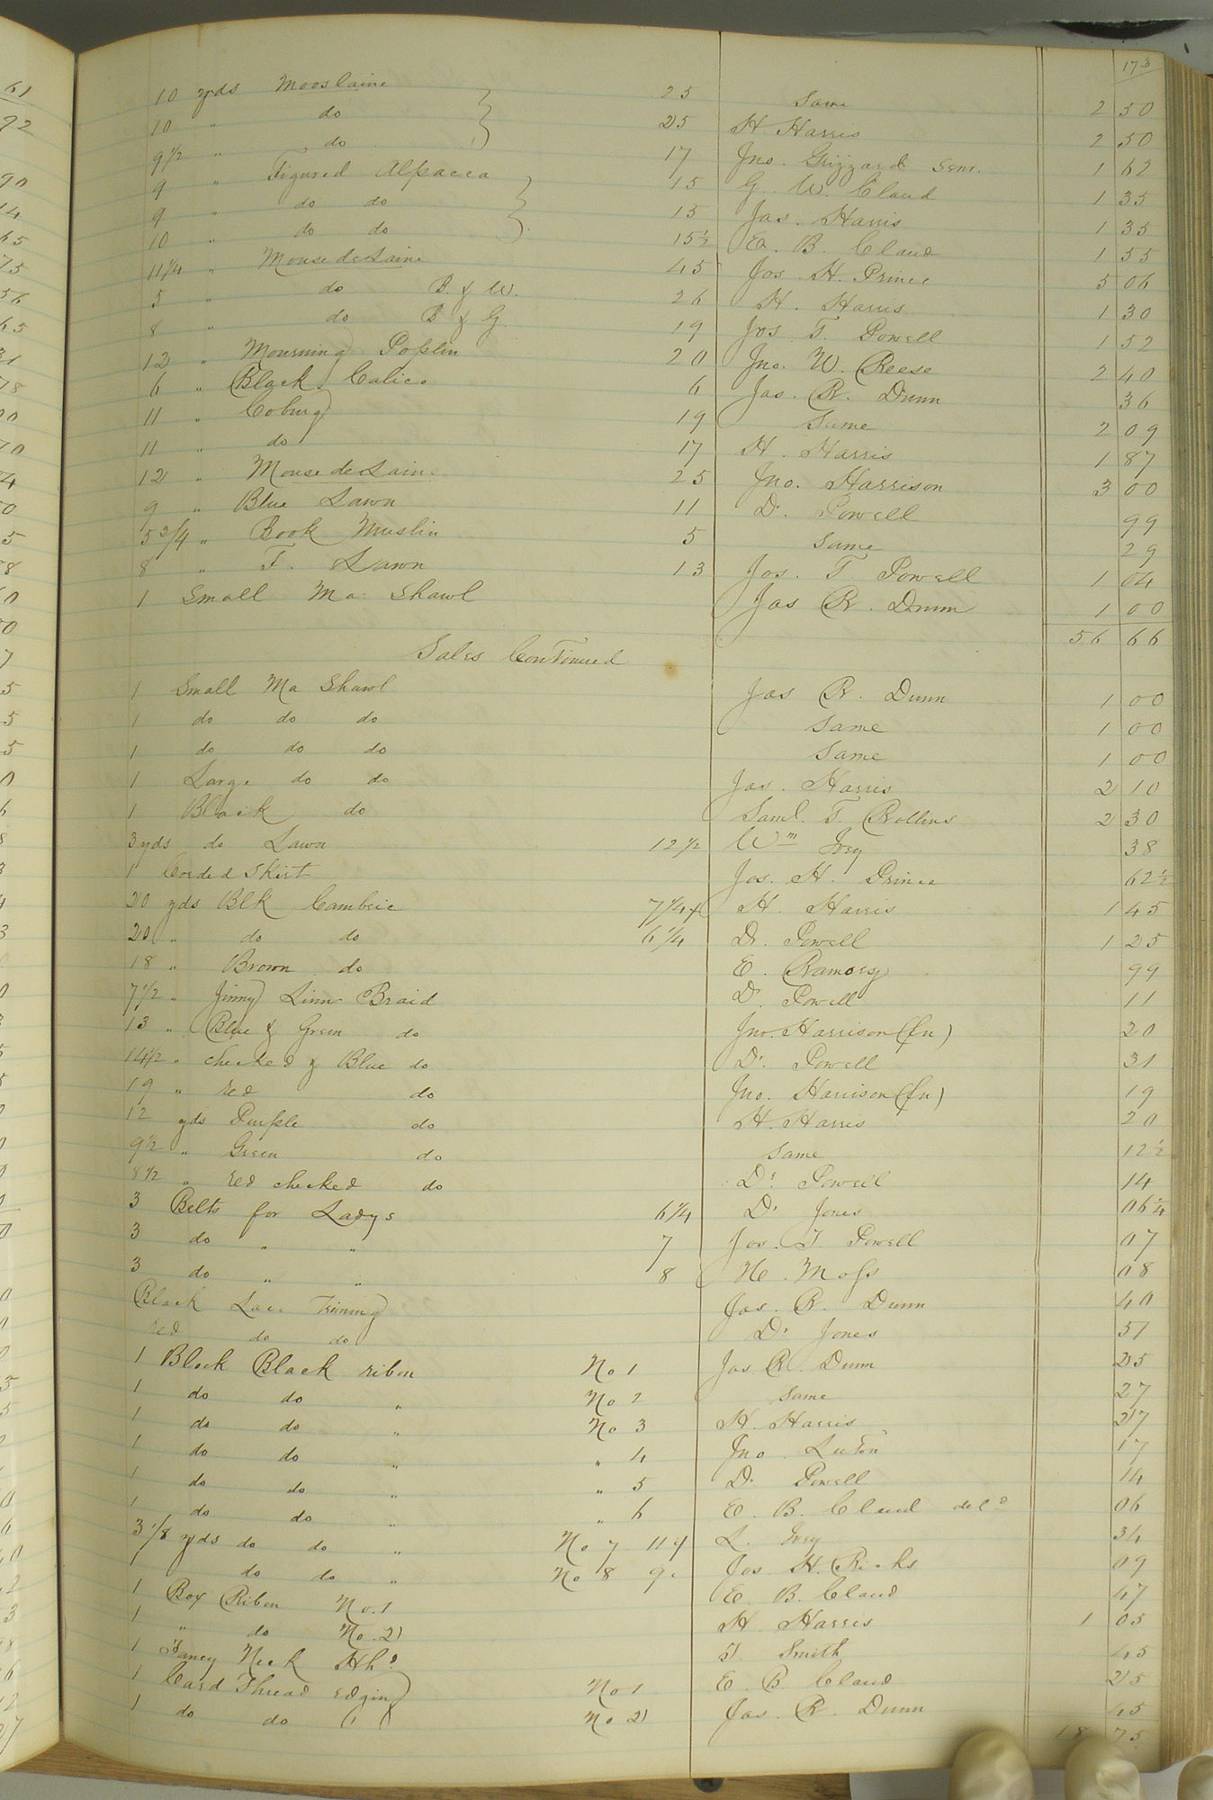 173
10 yds Mooslaine 25 Same 2 50
10 " do 25 H Harris 2 50
9 1/2 " do 17 Jno. Grizzard Senr. 1 62
9 " Figured Alpacca 15 G. W. Claud 1 35
9 " do do 15 Jas. Harris 1 35
10 " do do 15 1/2 E. B. Claud 1 55
11 1/4 " Mouse de Laine 45 Jos. H. Prince 5 06
5 " do B. & W. 26 H. Harris 1 30
8 " do B & G 19 Jos. T. Powell 1 52
12 " Mourning Poplin 20 Jno. W. Reese 2 40
6 " Black Calico 6 Jas. R. Dunn 36
11 " Coburg 19 Same 2 09
11 " do 17 H. Harris 1 87
12 " Mouse de Lain 25 Jno. Harrison 3 00
9 " Blue Lawn 11 Dr. Powell 99
5 3/4 " Book Muslin 5 Same 29
8 " F. Lawn 13 Jos. T Powell 1 04
1 Small Ma Shawl Jas R. Dunn 1 00
56 66
Sales Continued
1 Small Ma Shawl Jas R. Dunn 1 00
1 do do do Same 1 00
1 do do do Same 1 00
1 Large do do Jas. Harris 2 10
1 Black do Saml. T. Rollins 2 30
3 yds do Lawn 12 1/2 Wm Ivey 38
1 Corded Skirt Jos. H. Prince 62 1/2
20 yds Blk Cambric 7 1/4 H. Harris 1 45
20 " do do 6 1/4 Dr. Powell 1 25
18 " Brown do E. Ramsey 99
7 1/2 " Linn Braid Dr. Powell 11
13 " Blue & Green do Jno. Harrison (fn) 20
14 1/2 " checked & Blue do Dr. Powell 31
19 " red do Jno. Harrison (fn) 19
12 yds Purple do H. Harris 20
9 1/2 " Green do Same 12 1/2
8 1/2 " red checked do Dr. Powell 14
3 Belts for Ladys 6 1/4 Dr Jones 06 1/4
3 do " " 7 Jos. T Powell 07
3 do " " 8 Moss 08
Black Lace Trimng Jas. R. Dunn 40
red do do Dr Jones 51
1 Block Black ribon No 1 Jas R. Dunn 25
1 do do " No 2 Same 27
1 do do " No 3 H. Harris 27
1 do do " " 4 Jno. Luton 17
1 do do " " 5 Dr. Powell 14
1 do do " " 6 E. B. Claud 06
3 1/8 yds do do " No 7 11 L. Ivey 34
do do " No 8 9 Jos. H. Ricks 09
1 Box Ribon No. 1 E. B. Claud 47
1 " do No. 2 H. Harris 1 05
1 Fancy Neck Hh Smith 45
1 Card Thread edging No 1 E. B. Claud 25
1 do do No 2 Jas. R. Dunn 45
18 75